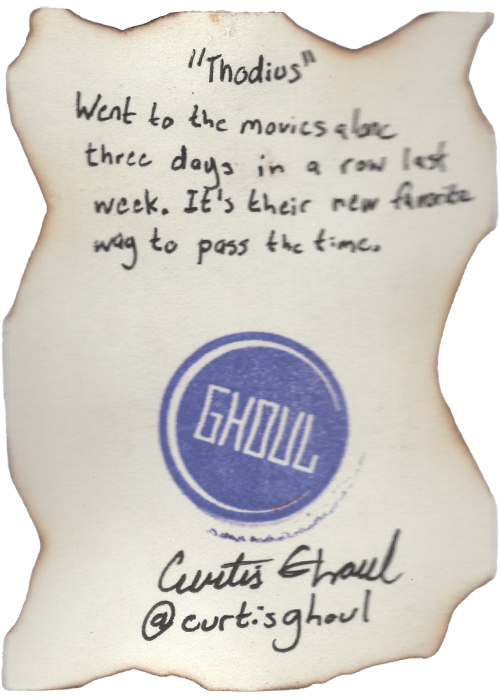 "Thodius"
Went to the movies alone
three days in a row last
week. It's their new favorite
way to pass the time.
GHOUL
Curtis Ghoul
@curtisghoul